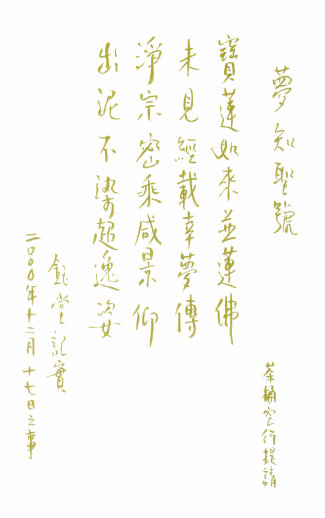 夢知聖號
寶蓮如來並蓮佛
未見經載幸夢傳
淨宗密乘咸景仰
出泥不染超逸姿
鈺堂記實
二〇〇〇年十二月十七日之事
茶桶空行提請